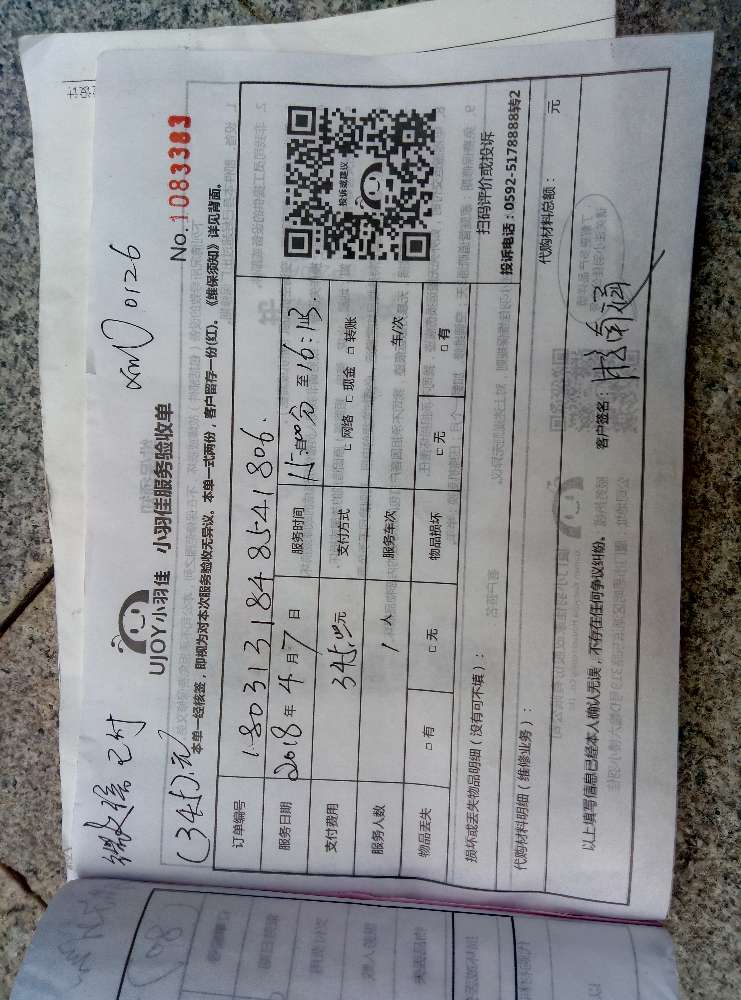 微支信已付
(345.元)
xm 0126
UJOY小羽佳 小羽佳服务验收单
No.1083383
本单一经核签,即视为对本次服务验收无异议。本单一式两份,客户留存一份(红)。《维保须知》详见背面。
订单编号 1803131848541806.
服务日期 2018年4月7日 服务时间 15:00分至16:43.
支付费用 345.元 支付方式 □网络 □现金 □转账
服务人数 1人 服务车次 车/次
物品丢失 □有 □无 物品损坏 □无 □有
投诉或建议
扫码评价或投诉
投诉电话:0592-5178888转2
损坏或丢失物品明细(没有可不填):
代购材料明细(维修业务): 代购材料总额: 元
以上填写信息已经本人确认无误,不存在任何争议纠纷。 客户签名: